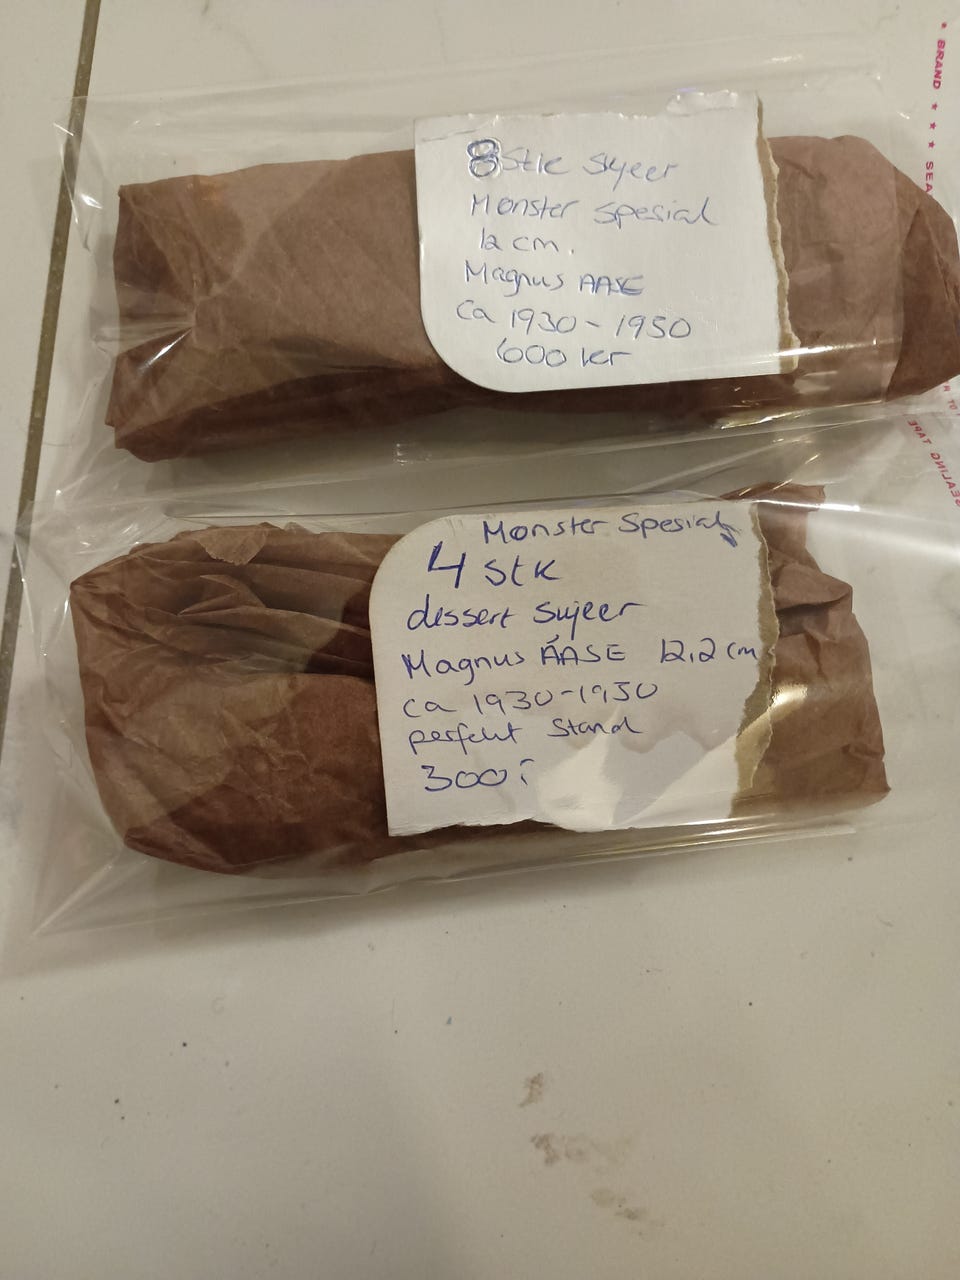 8 Stk skjeer
Monster spesial
12 cm.
Magnus AASE
Ca 1930 - 1950
600 kr
Monster Spesial
4 stk
dessert skjeer
Magnus ÅASE 12,2 cm
ca 1930-1950
perfekt stand
300;
* BRAND * * SEA
SEALING TAPE